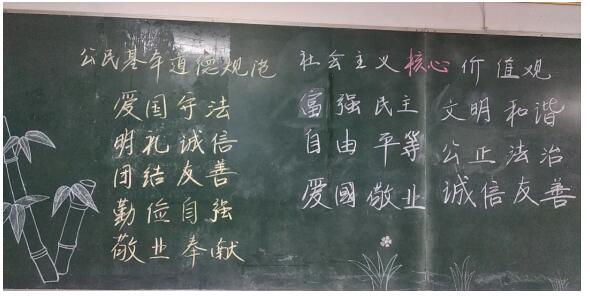 公民基本道德规范
爱国守法
明礼诚信
团结友善
勤俭自强
敬业奉献
社会主义核心价值观
富强民主 文明和谐
自由平等 公正法治
爱國敬业 诚信友善